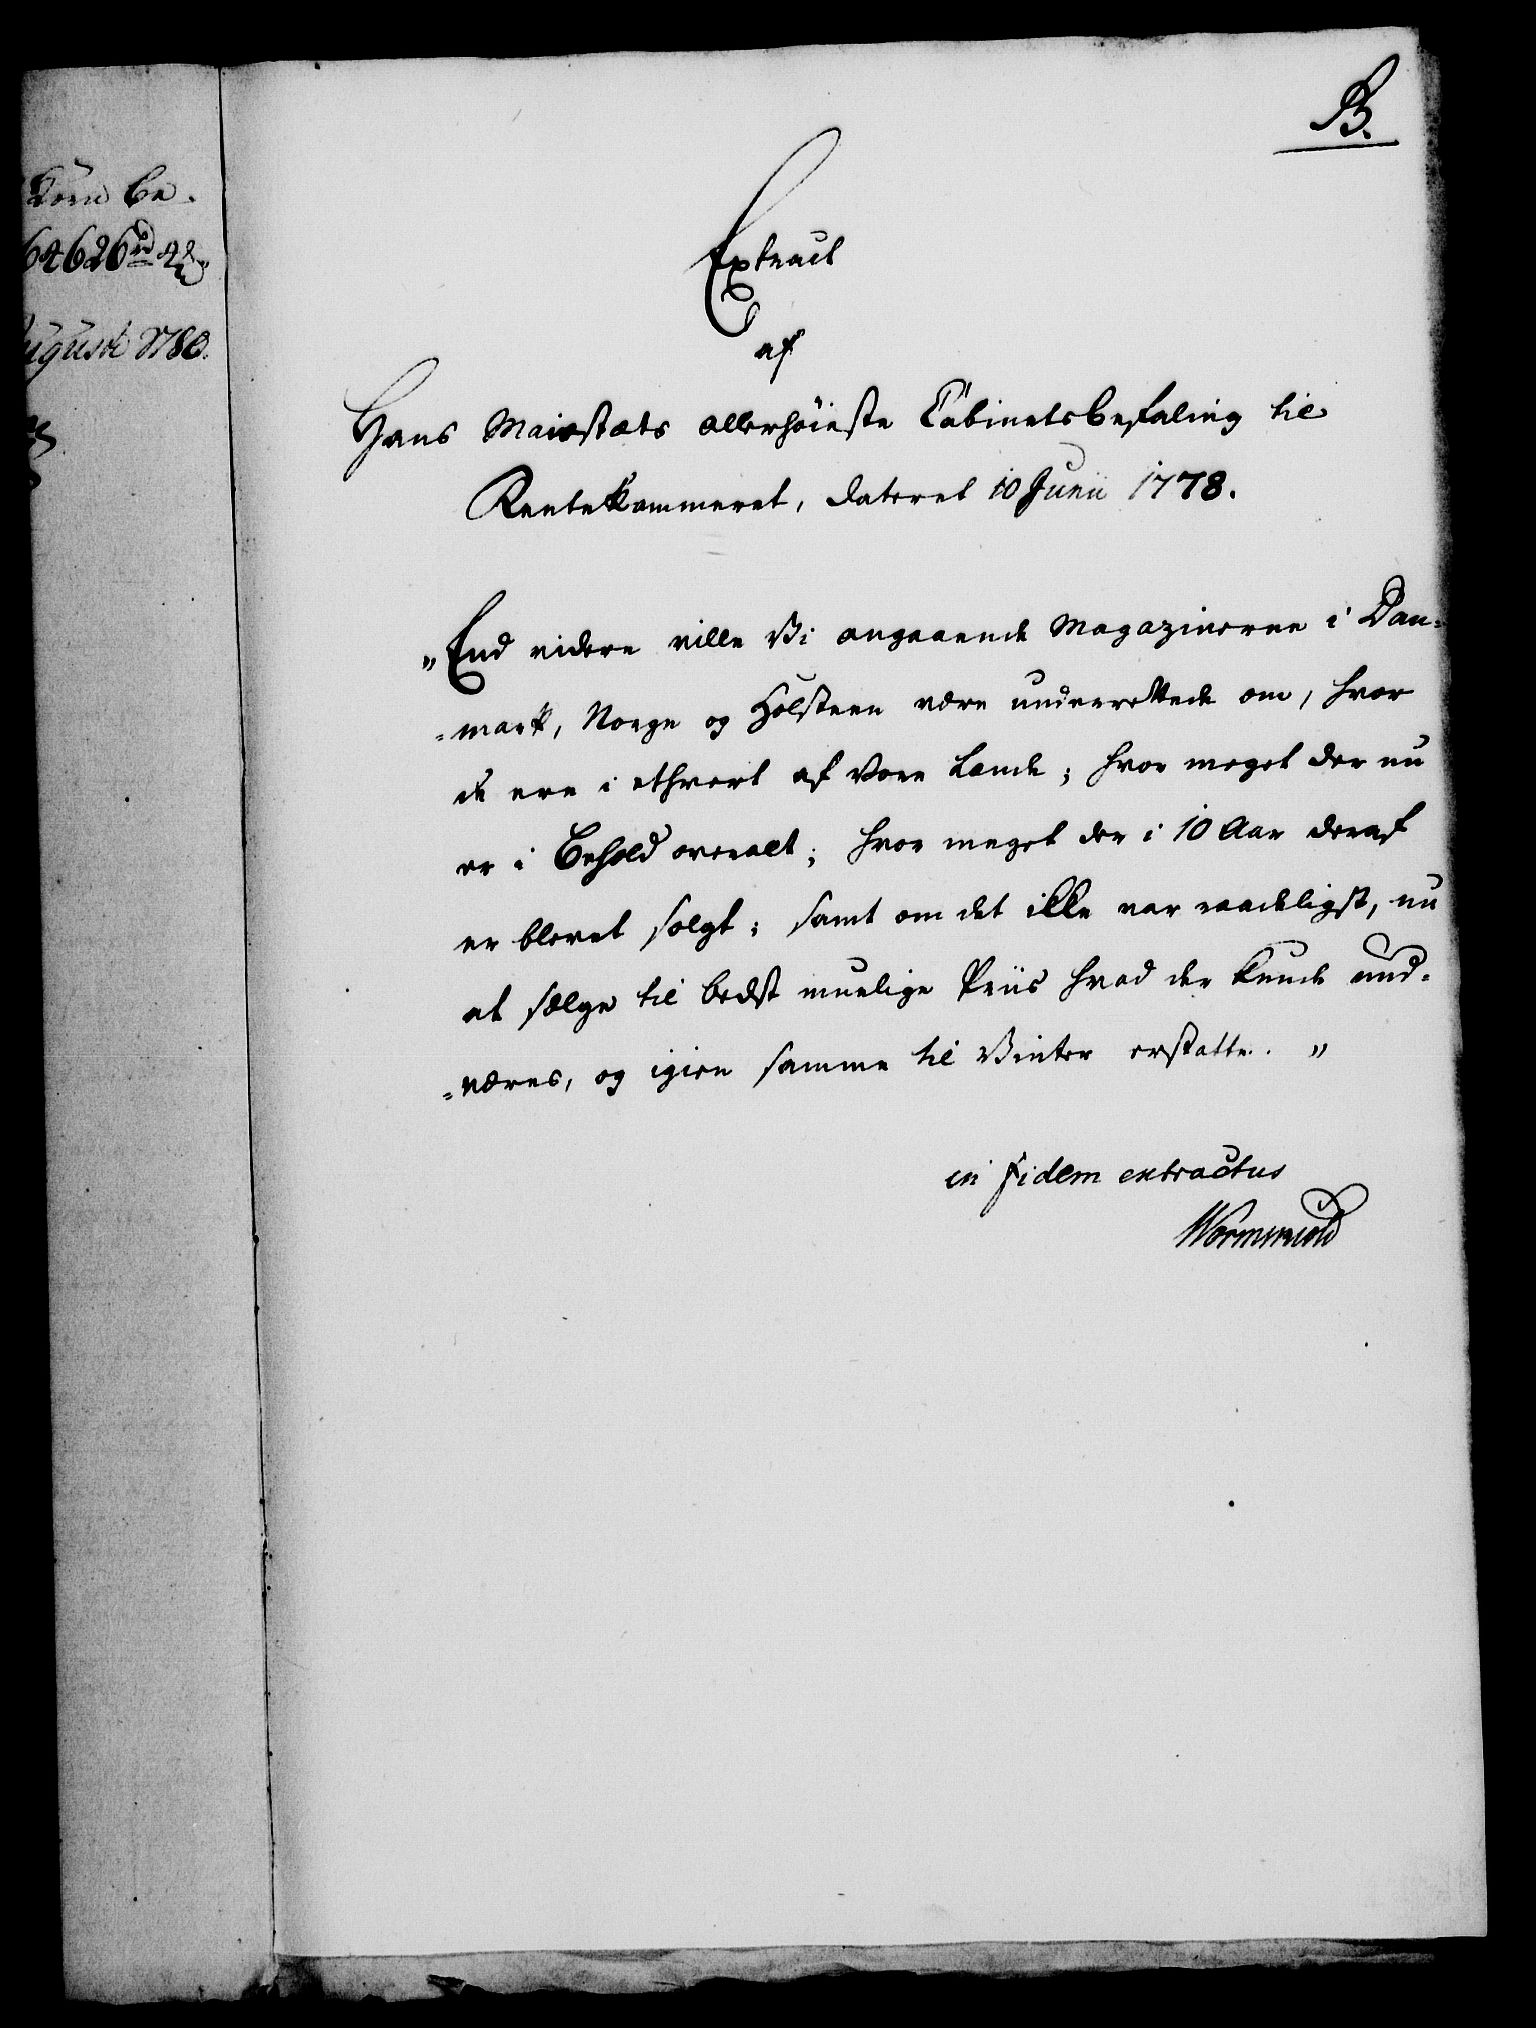 B.
Korn be-
64626
August 1780.
Extract
af
Hans Maiestæts allerhöieste Cabinetsbefaling til
Rentekammeret, dateret 10 Junii 1778.
„End videre ville Vi angaaende Magazinerne i Dan-
-mark, Norge og Holsteen være underrettede om, hvor
de ere i ethvert af Vore Lande; hvor meget der nu
er i Behold overalt; hvor meget der i 10 Aar deraf
er blevet solgt; samt om det ikke var raadeligst, nu
at sælge til bedst muelige Priis hvad der kunde und-
-væres, og igien samme til Vinter erstatte. „
in fidem extractus
Wormskiold